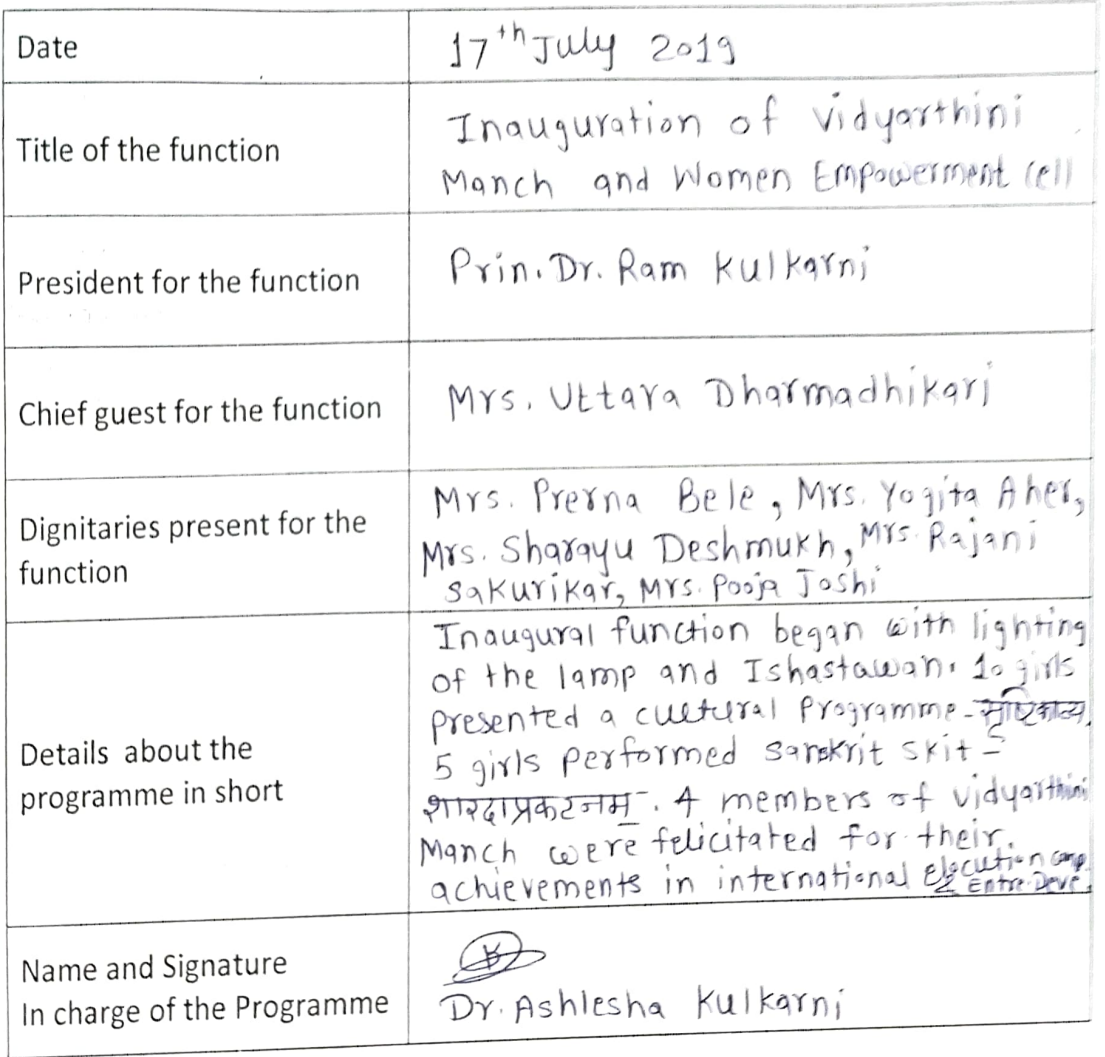 Date
17th July 2019
Title of the function
Inauguration of Vidyarthini
Manch and Women Empowerment Cell
President for the function
Prin. Dr. Ram Kulkarni
Chief guest for the function
Mrs. Uttara Dharmadhikari
Dignitaries present for the
function
Mrs. Prerna Bele, Mrs. Yogita Aher,
Mrs. Sharayu Deshmukh, Mrs. Rajani
Sakurikar, Mrs. Pooja Joshi
Details about the
programme in short
Inaugural function began with lighting
of the lamp and Ishastawan. 10 girls
presented a cultural Programme -
5 girls performed sanskrit skit -
शारदाप्रकटनम्. 4 members of vidyarthini
Manch were felicitated for their
achievements in international elocution comp
& Entre. Deve.
Name and Signature
In charge of the Programme
Dr. Ashlesha Kulkarni